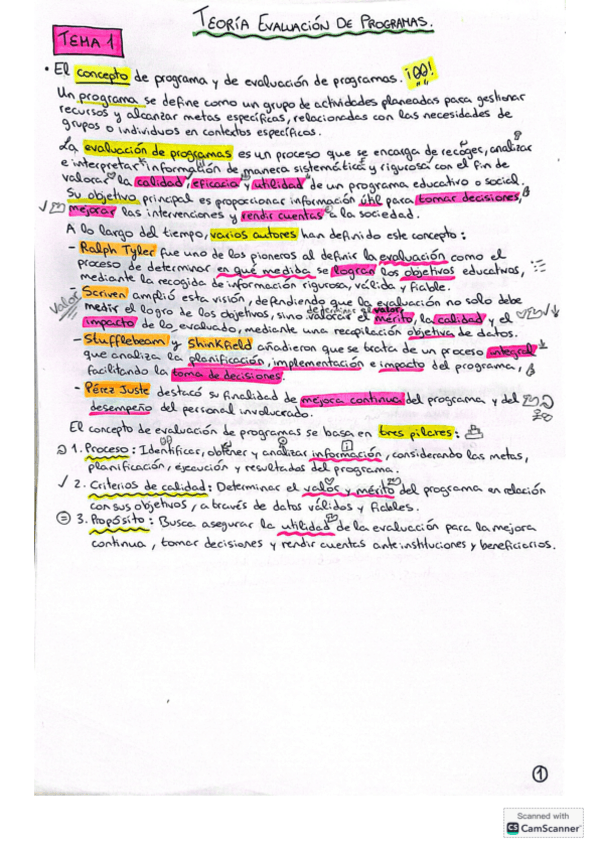 TEORÍA EVALUACIÓN DE PROGRAMAS.
TEMA 1
• El concepto de programa y de evaluación de programas. ¡OO!
Un programa se define como un grupo de actividades planeadas para gestionar
recursos y alcanzar metas específicas, relacionadas con las necesidades de
grupos o individuos en contextos específicos.
La evaluación de programas es un proceso que se encarga de recoges, analizar
e interpretar información de manera sistemática y rigurosa con el fin de
valorar la calidad, eficacia y utilidad de un programa educativo o social.
Su objetivo principal es proporcionar información útil para tomar decisiones,
mejorar las intervenciones y rendir cuentas a la sociedad.
A lo largo del tiempo, varios autores han definido este concepto:
- Ralph Tyler fue uno de los pioneros al definir la evaluación como el
proceso de determinar en qué medida se logran los objetivos educativos,
mediante la recogida de información rigurosa, válida y fiable.
- Scriven amplió esta visión, defendiendo que la evaluación no solo debe
Valor
medir el logro de los objetivos, sino valorar el mérito, la calidad y el
determinar el valor
impacto de lo evaluado, mediante una recopilación objetiva de datos.
- Stufflebeam y Shinkfield añadieron que se trata de un proceso integral
que analiza la planificación, implementación e impacto del programa,
facilitando la toma de decisiones.
- Pérez Juste destacó su finalidad de mejora continua del programa y del
desempeño del personal involucrado.
El concepto de evaluación de programas se basa en tres pilares:
1. Proceso: Identificar, obtener y analizar información, considerando las metas,
planificación, ejecución y resultados del programa.
2. Criterios de calidad: Determinar el valos y mérito del programa en relación
con sus objetivos, a través de datos válidos y fiables.
3. Propósito: Busca asegurar la utilidad de la evaluación para la mejora
continua, tomar decisiones y rendir cuentas ante instituciones y beneficiarios.
1
Scanned with
CS CamScanner